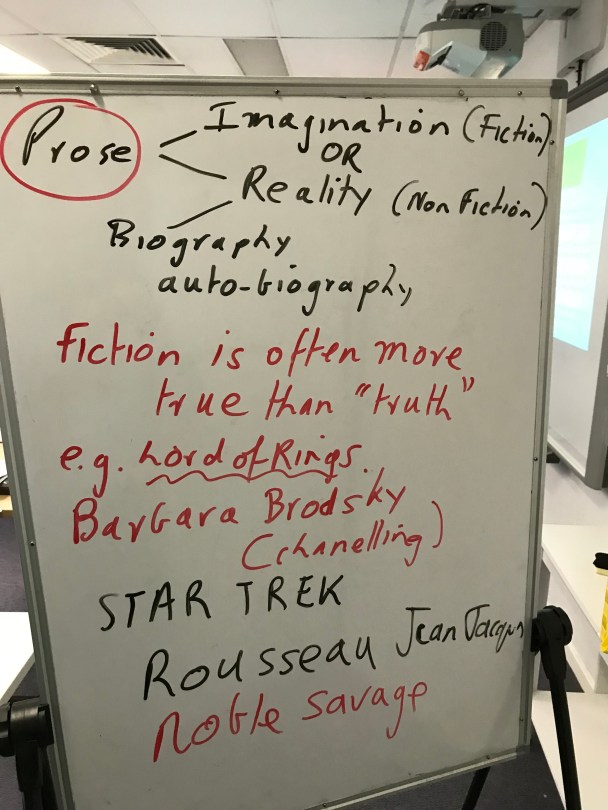 Prose
Imagination (Fiction).
OR
Reality (Non Fiction)
Biography
auto-biography
Fiction is often more
true than "truth"
e.g. Lord of Rings.
Barbara Brodsky
(chanelling)
STAR TREK
Rousseau Jean Jacques
Noble Savage